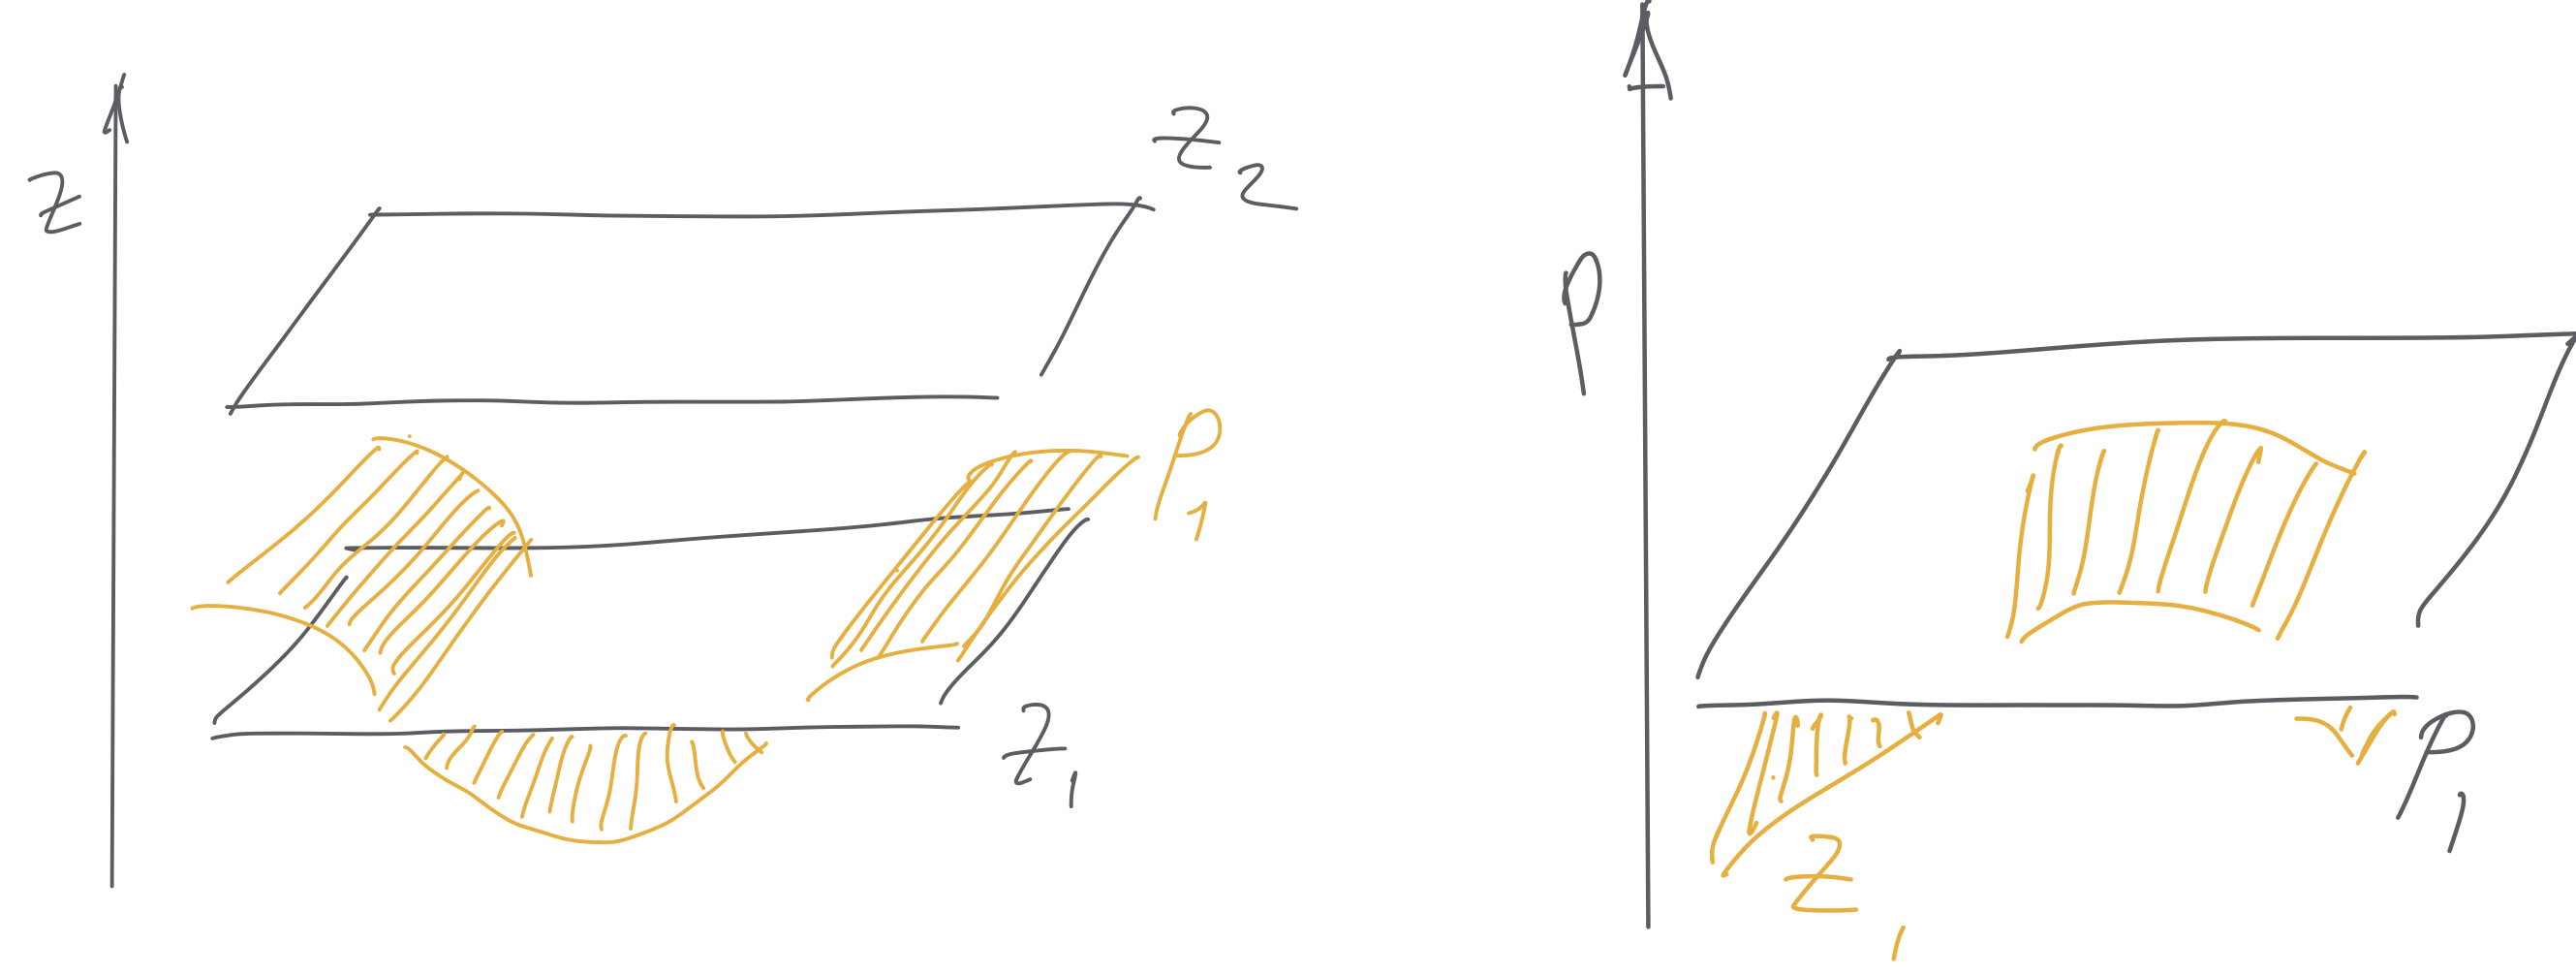 z
z 2
P 1
z 1
P
P 1
z 1